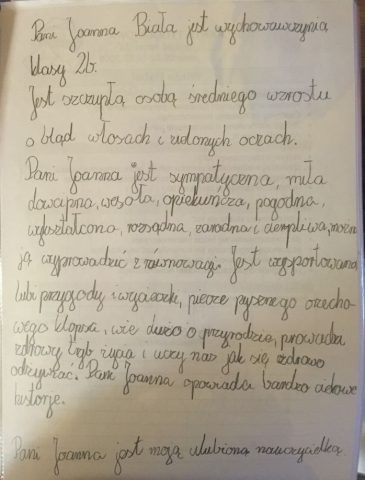 Pani Joanna Biała jest wychowawczynią
klasy 2b.
Jest szczupłą osobą średniego wzrostu
o bląd włosach i zielonych oczach.
Pani Joanna jest sympatyczna, miła
dowcipna, wesoła, opiekuńcza, pogodna,
wykształcona, rozsądna, zaradna i cierpliwa,
ją wyprowadzić z równowagi. Jest wysportowana
lubi przygody i wycieczki, piecze pysznego orzecho-
wego klopsa, wie dużo o przyrodzie, prowadzi
zdrowy tryb życia i uczy nas jak się zdrowo
odżywiać. Pani Joanna opowiada bardzo ciekawe
historje.
Pani Joanna jest moją ulubioną nauczycielką